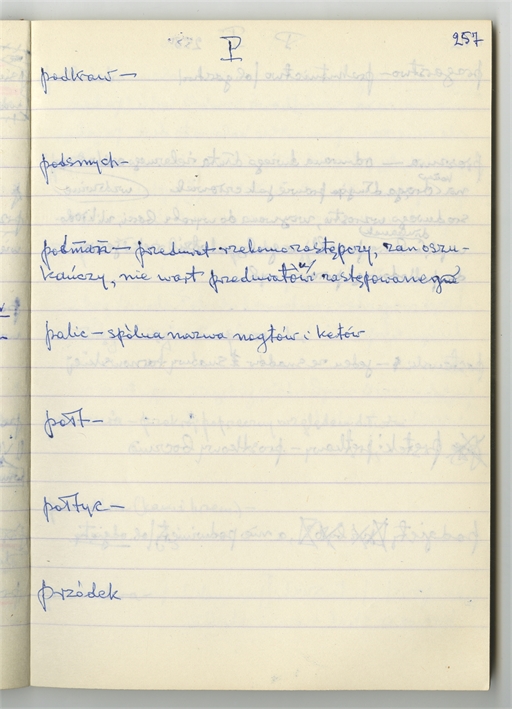 P 257
podkraw –
podsmych –
podmań – przedmiot rzekomo zastępczy, zan oszu-
kańczy, nie wart przedmiotów zastępowane
palic – spólna nazwa nogtów i ketów
połt –
połtyc –
przódek